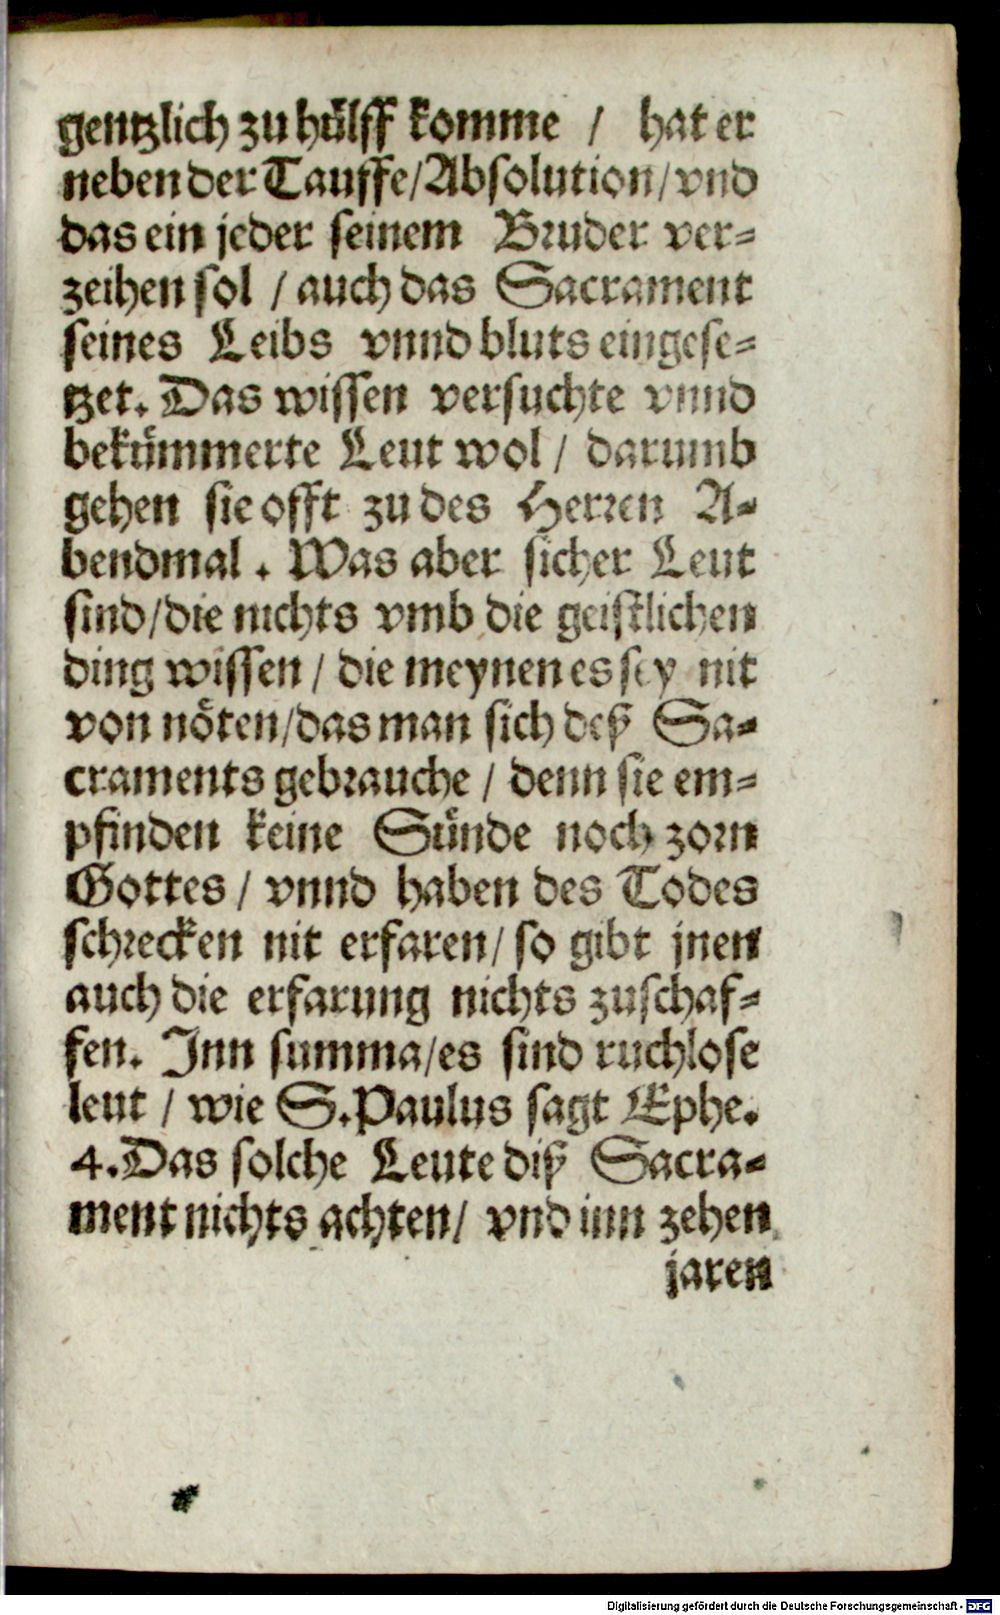 gentzlich zu hülff komme / hat er
neben der Tauffe/Absolution/vnd
das ein jeder seinem Bruder ver⸗
zeihen sol / auch das Sacrament
seines Leibs vnnd bluts eingese⸗
tzet. Das wissen versuchte vnnd
bekümmerte Leut wol / darumb
gehen sie offt zu des Herren A⸗
bendmal. Was aber sicher Leut
sind/die nichts vmb die geistlichen
ding wissen / die meynen es sey nit
von nöten/das man sich deß Sa⸗
craments gebrauche / denn sie em⸗
pfinden keine Sünde noch zorn
Gottes / vnnd haben des Todes
schrecken nit erfaren/ so gibt jnen
auch die erfarung nichts zuschaf⸗
fen. Inn summa/es sind ruchlose
leut / wie S.Paulus sagt Ephe.
4.Das solche Leute diß Sacra⸗
ment nichts achten/ vnd inn zehen
jaren
Digitalisierung gefördert durch die Deutsche Forschungsgemeinschaft - DFG